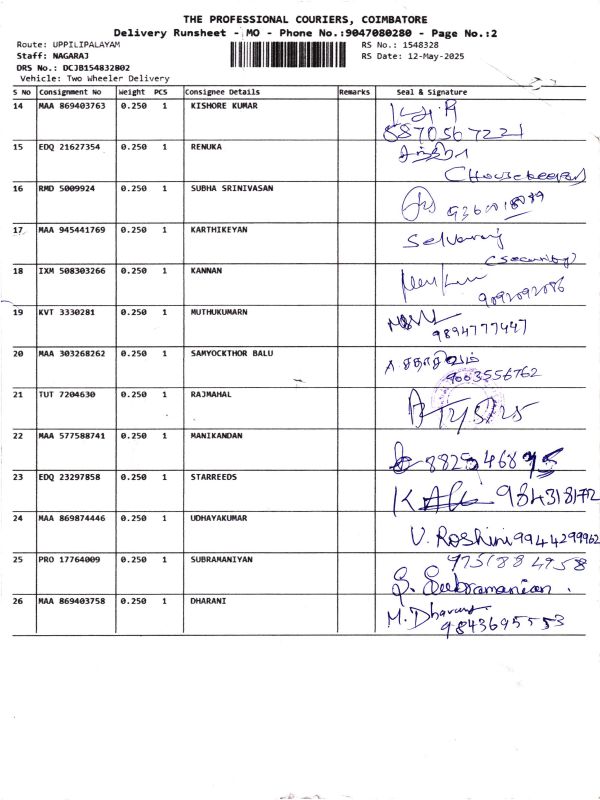 THE PROFESSIONAL COURIERS, COIMBATORE
Delivery Runsheet - MO - Phone No.:9047080280 - Page No.:2
Route: UPPILIPALAYAM RS No.: 1548328
Staff: NAGARAJ RS Date: 12-May-2025
DRS No.: DCJB154832B02
Vehicle: Two Wheeler Delivery
S No Consignment No Weight PCS Consignee Details Remarks Seal & Signature
14 MAA 869403763 0.250 1 KISHORE KUMAR
8870567221
15 EDQ 21627354 0.250 1 RENUKA
(Housekeeping)
16 RMD 5009924 0.250 1 SUBHA SRINIVASAN
17 MAA 945441769 0.250 1 KARTHIKEYAN Selvaraj
(Security)
18 IXM 508303266 0.250 1 KANNAN
9092092086
19 KVT 3330281 0.250 1 MUTHUKUMARN
9894777447
20 MAA 303268262 0.250 1 SAMYOCKTHOR BALU சதாசிவம்
9003556762
21 TUT 7204630 0.250 1 RAJMAHAL
22 MAA 577588741 0.250 1 MANIKANDAN
23 EDQ 23297858 0.250 1 STARREEDS
24 MAA 869874446 0.250 1 UDHAYAKUMAR V. Roshini 9944299962
25 PRO 17764009 0.250 1 SUBRAMANIYAN 9751884958
S. Subramanian.
26 MAA 869403758 0.250 1 DHARANI M. Dharani
9843695553